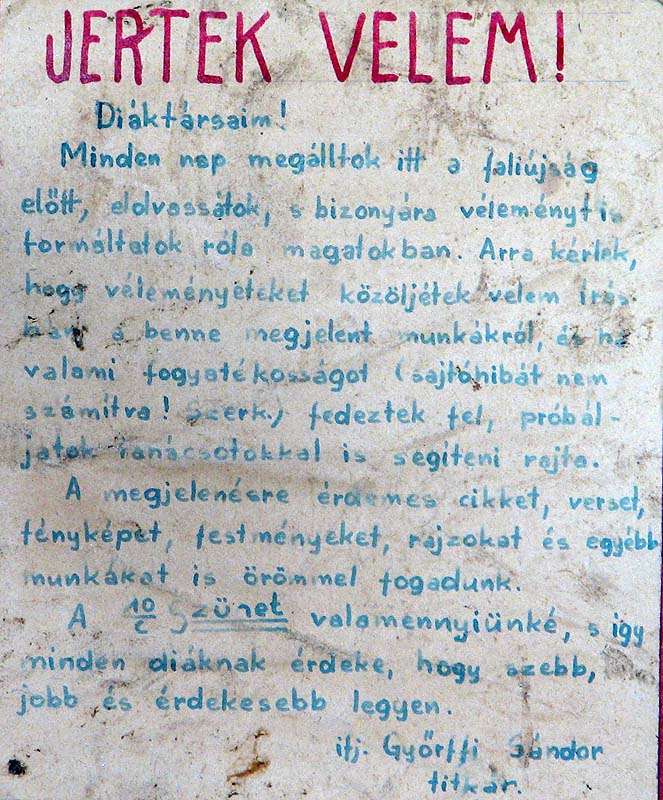 JERTEK VELEM!
Diáktársaim!
Minden nap megálltok itt a faliújság
előtt, elolvassátok, s bizonyára véleményt is
formáltatok róla magatokban. Arra kérlek,
hogy véleményeteket közöljétek velem írás-
ban a benne megjelent munkákról, és ha
valami fogyatékosságot (sajtóhibát nem
számítva! Szerk.) fedeztek fel, próbál-
jatok tanácsotokkal is segíteni rajta.
A megjelenésre érdemes cikket, verset,
fényképet, festményeket, rajzokat és egyébb
munkákat is örömmel fogadunk.
A 10/c Szünet valamennyiünké, s így
minden diáknak érdeke, hogy szebb,
jobb és érdekesebb legyen.
ifj. Győrffi Sándor
titkár.